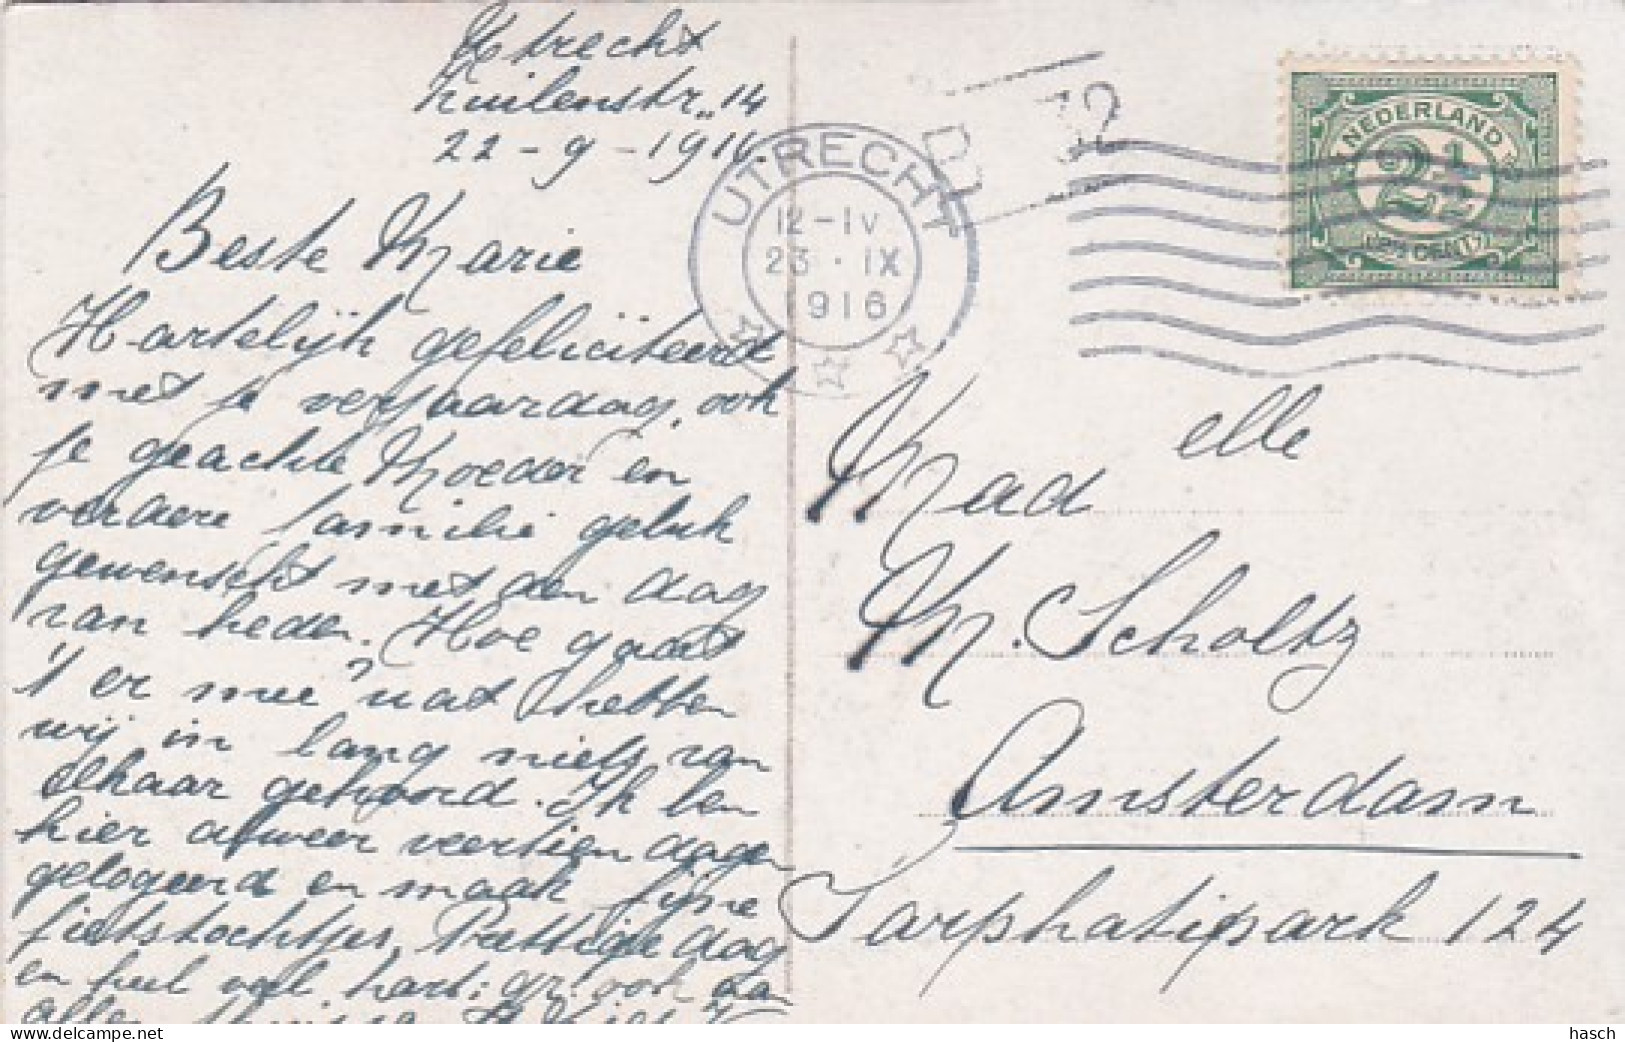 Utrecht
Kuilenstr. 14
22-9-1916.
Beste Marie
Hartelijk gefeliciteerd
met je verjaardag, ook
je geachte Moeder en
verdere familie geluk
gewenscht met den dag
van heden. Hoe gaat
't er mee? wat hebben
wij in lang niets van
elkaar gehoord. Ik ben
hier alweer veertien dagen
gelogeerd en maak fijne
fietstochtjes, Prettige dag
en heel veel hart: gr: ook aan
allen thuis
UTRECHT
12-IV
23·IX
1916
32
NEDERLAND
2½
CENT
Mad elle
M. Scholtz
Amsterdam
Sarphatipark 124
hasch